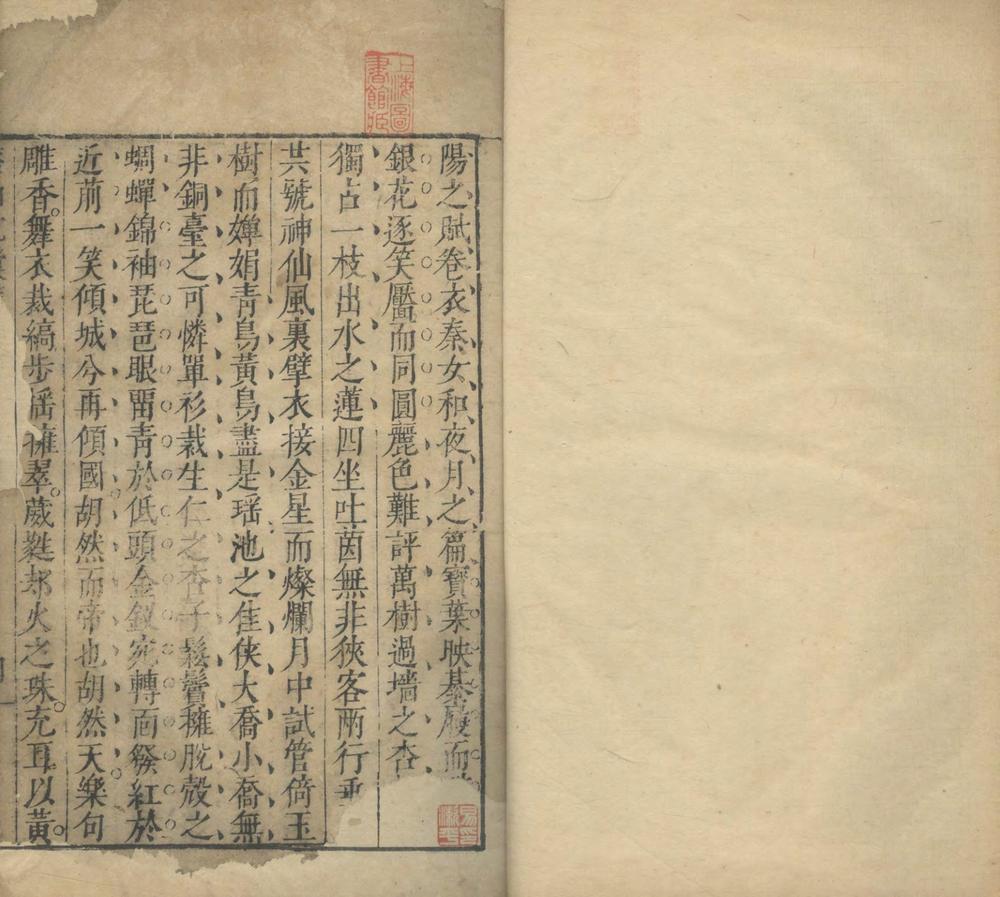 上海圖
書館藏
陽之賦卷衣秦女和夜月之篇寶葉映綦履而
銀花逐笑靨而同圓麗色難評萬樹過墻之杏
獨占一枝出水之蓮四坐吐茵無非狹客兩行
共號神仙風裏擘衣接金星而燦爛月中試管倚玉
樹而嬋娟青鳥黃鳥盡是瑶池之佳侠大喬小喬無
非銅臺之可憐單衫裁生仁之杏子鬆鬢擁脫殼之
蜩蟬錦袖琵琶眼畱青於低頭金釵宛轉面發紅於
近前一笑傾城兮再傾國胡然而帝也胡然天樂句
雕香舞衣裁縞步徭擁翠葳蕤却火之珠充耳以黃